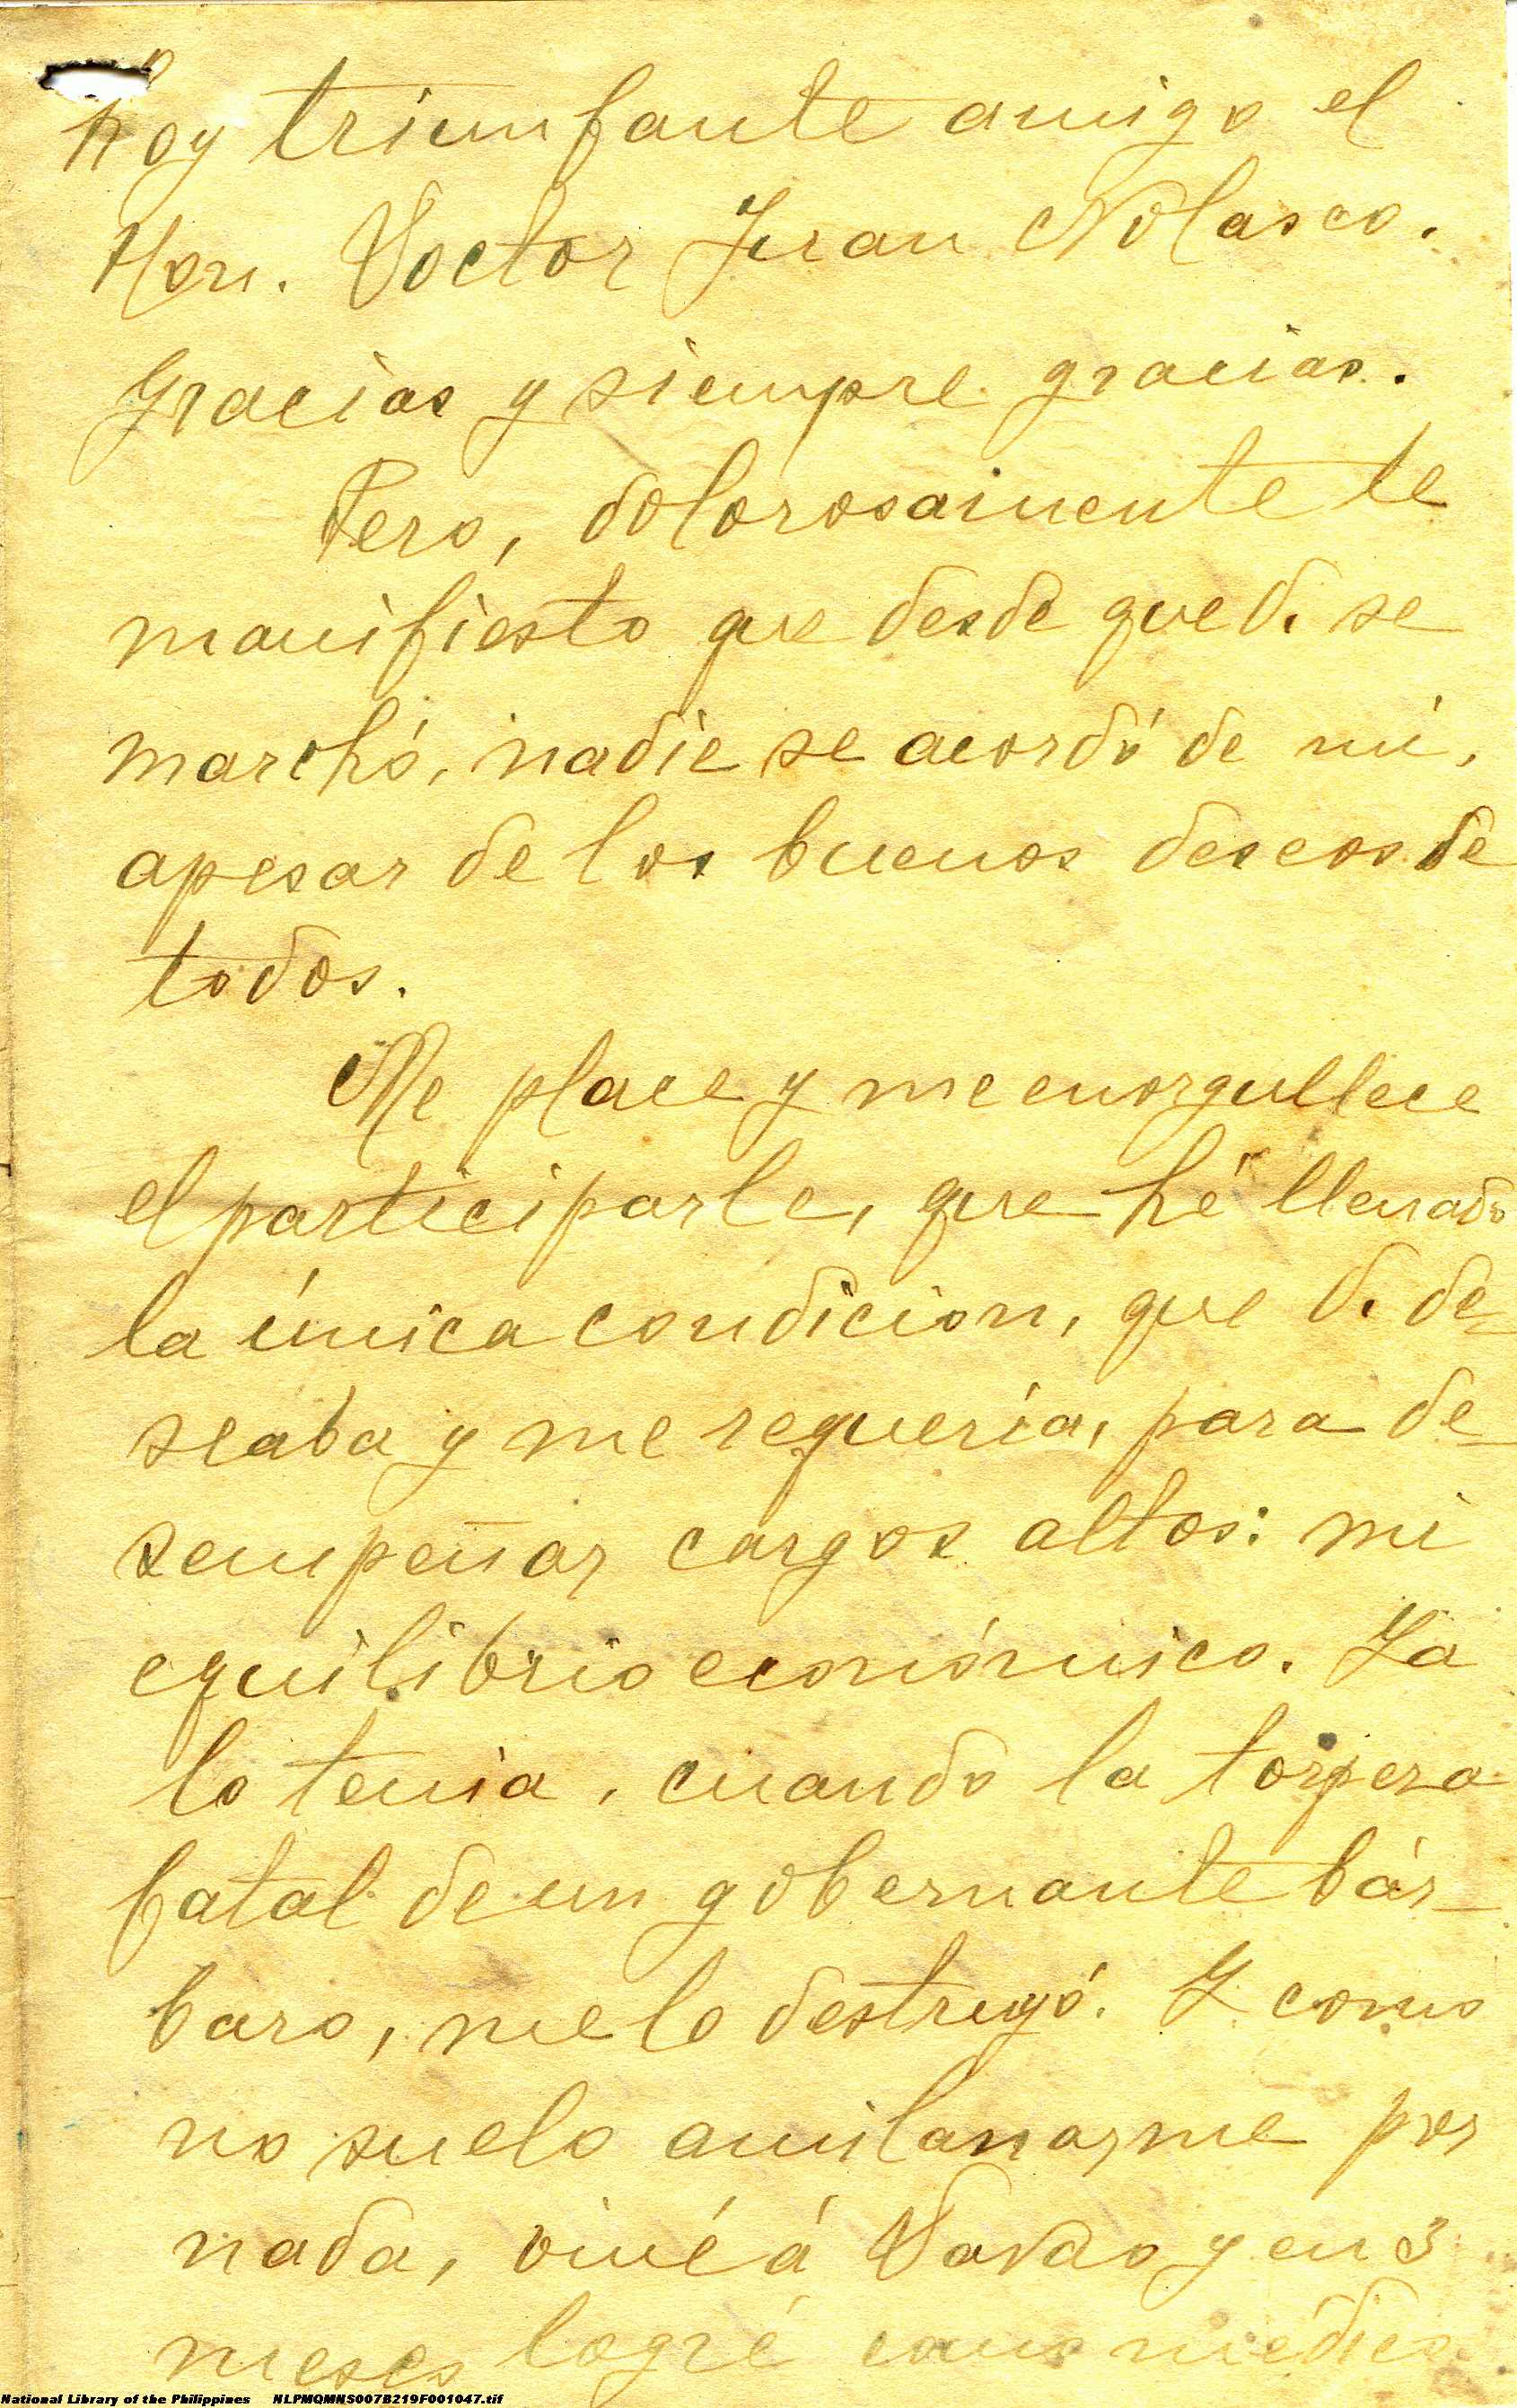 hoy triunfante amigo el
Hon. Doctor Juan Nolasco.
Gracias y siempre gracias.
Pero, dolorosamente le
manifiesto que desde que V. se
marchó, nadie se acordó de mi,
apesar de los buenos deseos de
todos.
Me place y me enorgullece
el participarle, que hé llenado
la única condicion, que V. de-
seaba y me requería, para de-
sempeñar cargos altos: mi
equilibrio económico. Ya
lo tenia, cuando la torpeza
fatal de un gobernante bár-
baro, me lo destruyó. Y como
no suelo amilanarme por
nada, viné á Davao y en 3
meses logré como médico
National Library of the Philippines NLPMQMNS007B219F001047.tif